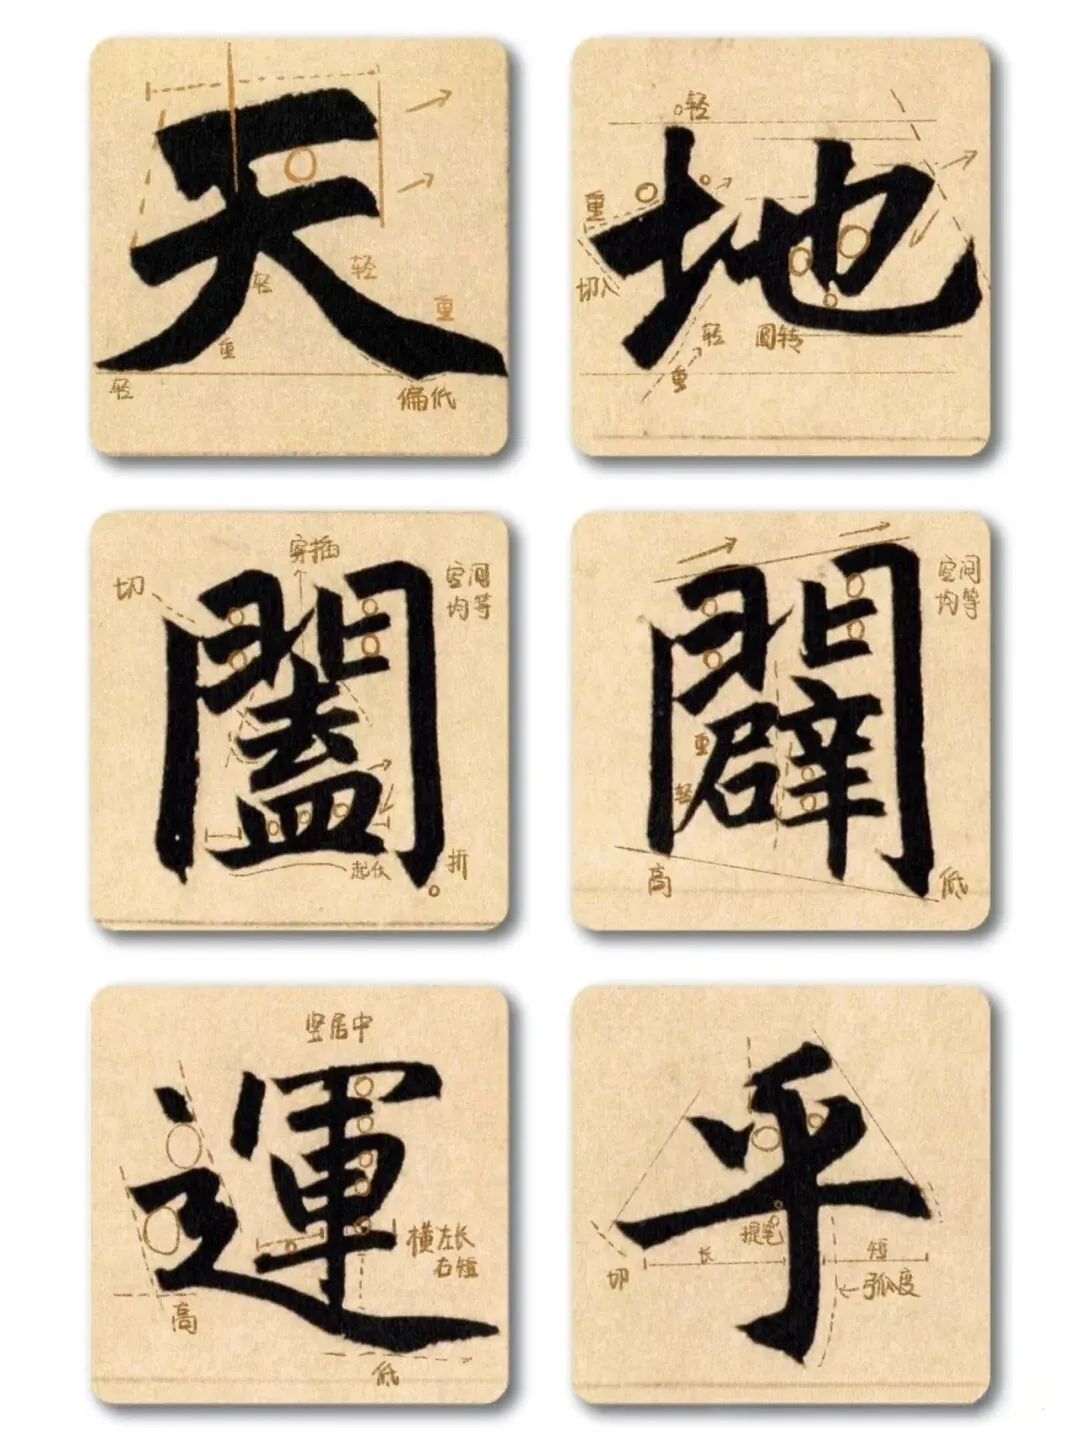 天
轻
轻
重
重
轻
偏低
地
轻
重
切
轻
圆转
重
闔
穿插
切
空间
均等
起伏
折
闢
空间
均等
重
轻
高
低
運
竖居中
横左长
右短
高
低
乎
提笔
长
短
切
弧度